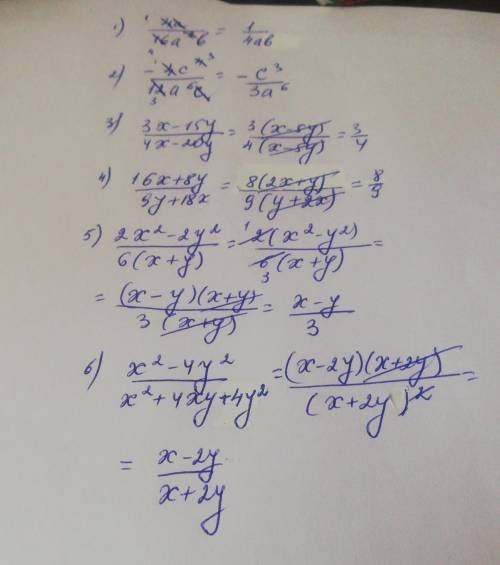 1) 4a / 16a²b = 1 / 4ab
2) -4c⁴ / 12a⁶c = - c³ / 3a⁶
3) 3x-15y / 4x-20y = 3(x-5y) / 4(x-5y) = 3/4
4) 16x+8y / 9y+18x = 8(2x+y) / 9(y+2x) = 8/9
5) 2x²-2y² / 6(x+y) = 2(x²-y²) / 6(x+y) =
= (x-y)(x+y) / 3(x+y) = x-y / 3
6) x²-4y² / x²+4xy+4y² = (x-2y)(x+2y) / (x+2y)² =
= x-2y / x+2y